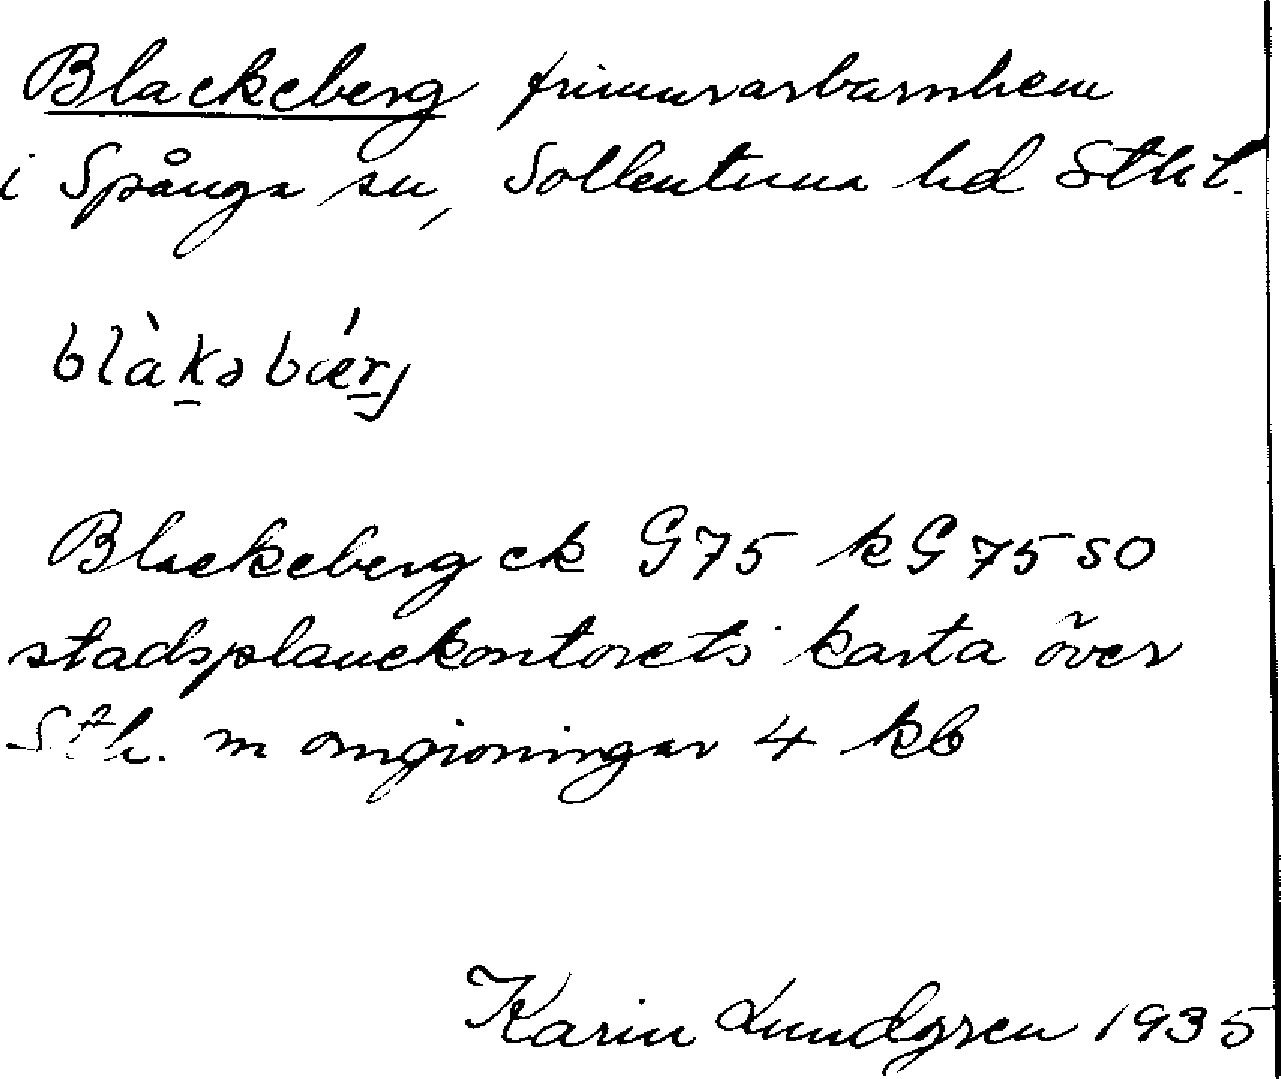 Blackeberg frimurarbarnhem
i Spånga sn, Sollentuna hd Sthl.
blàkəbǽrj
Blackeberg ek G75 kG75SO
stadsplanekontorets karta över
Sth. m omgivningar 4 kb
Karin Lundgren 1935